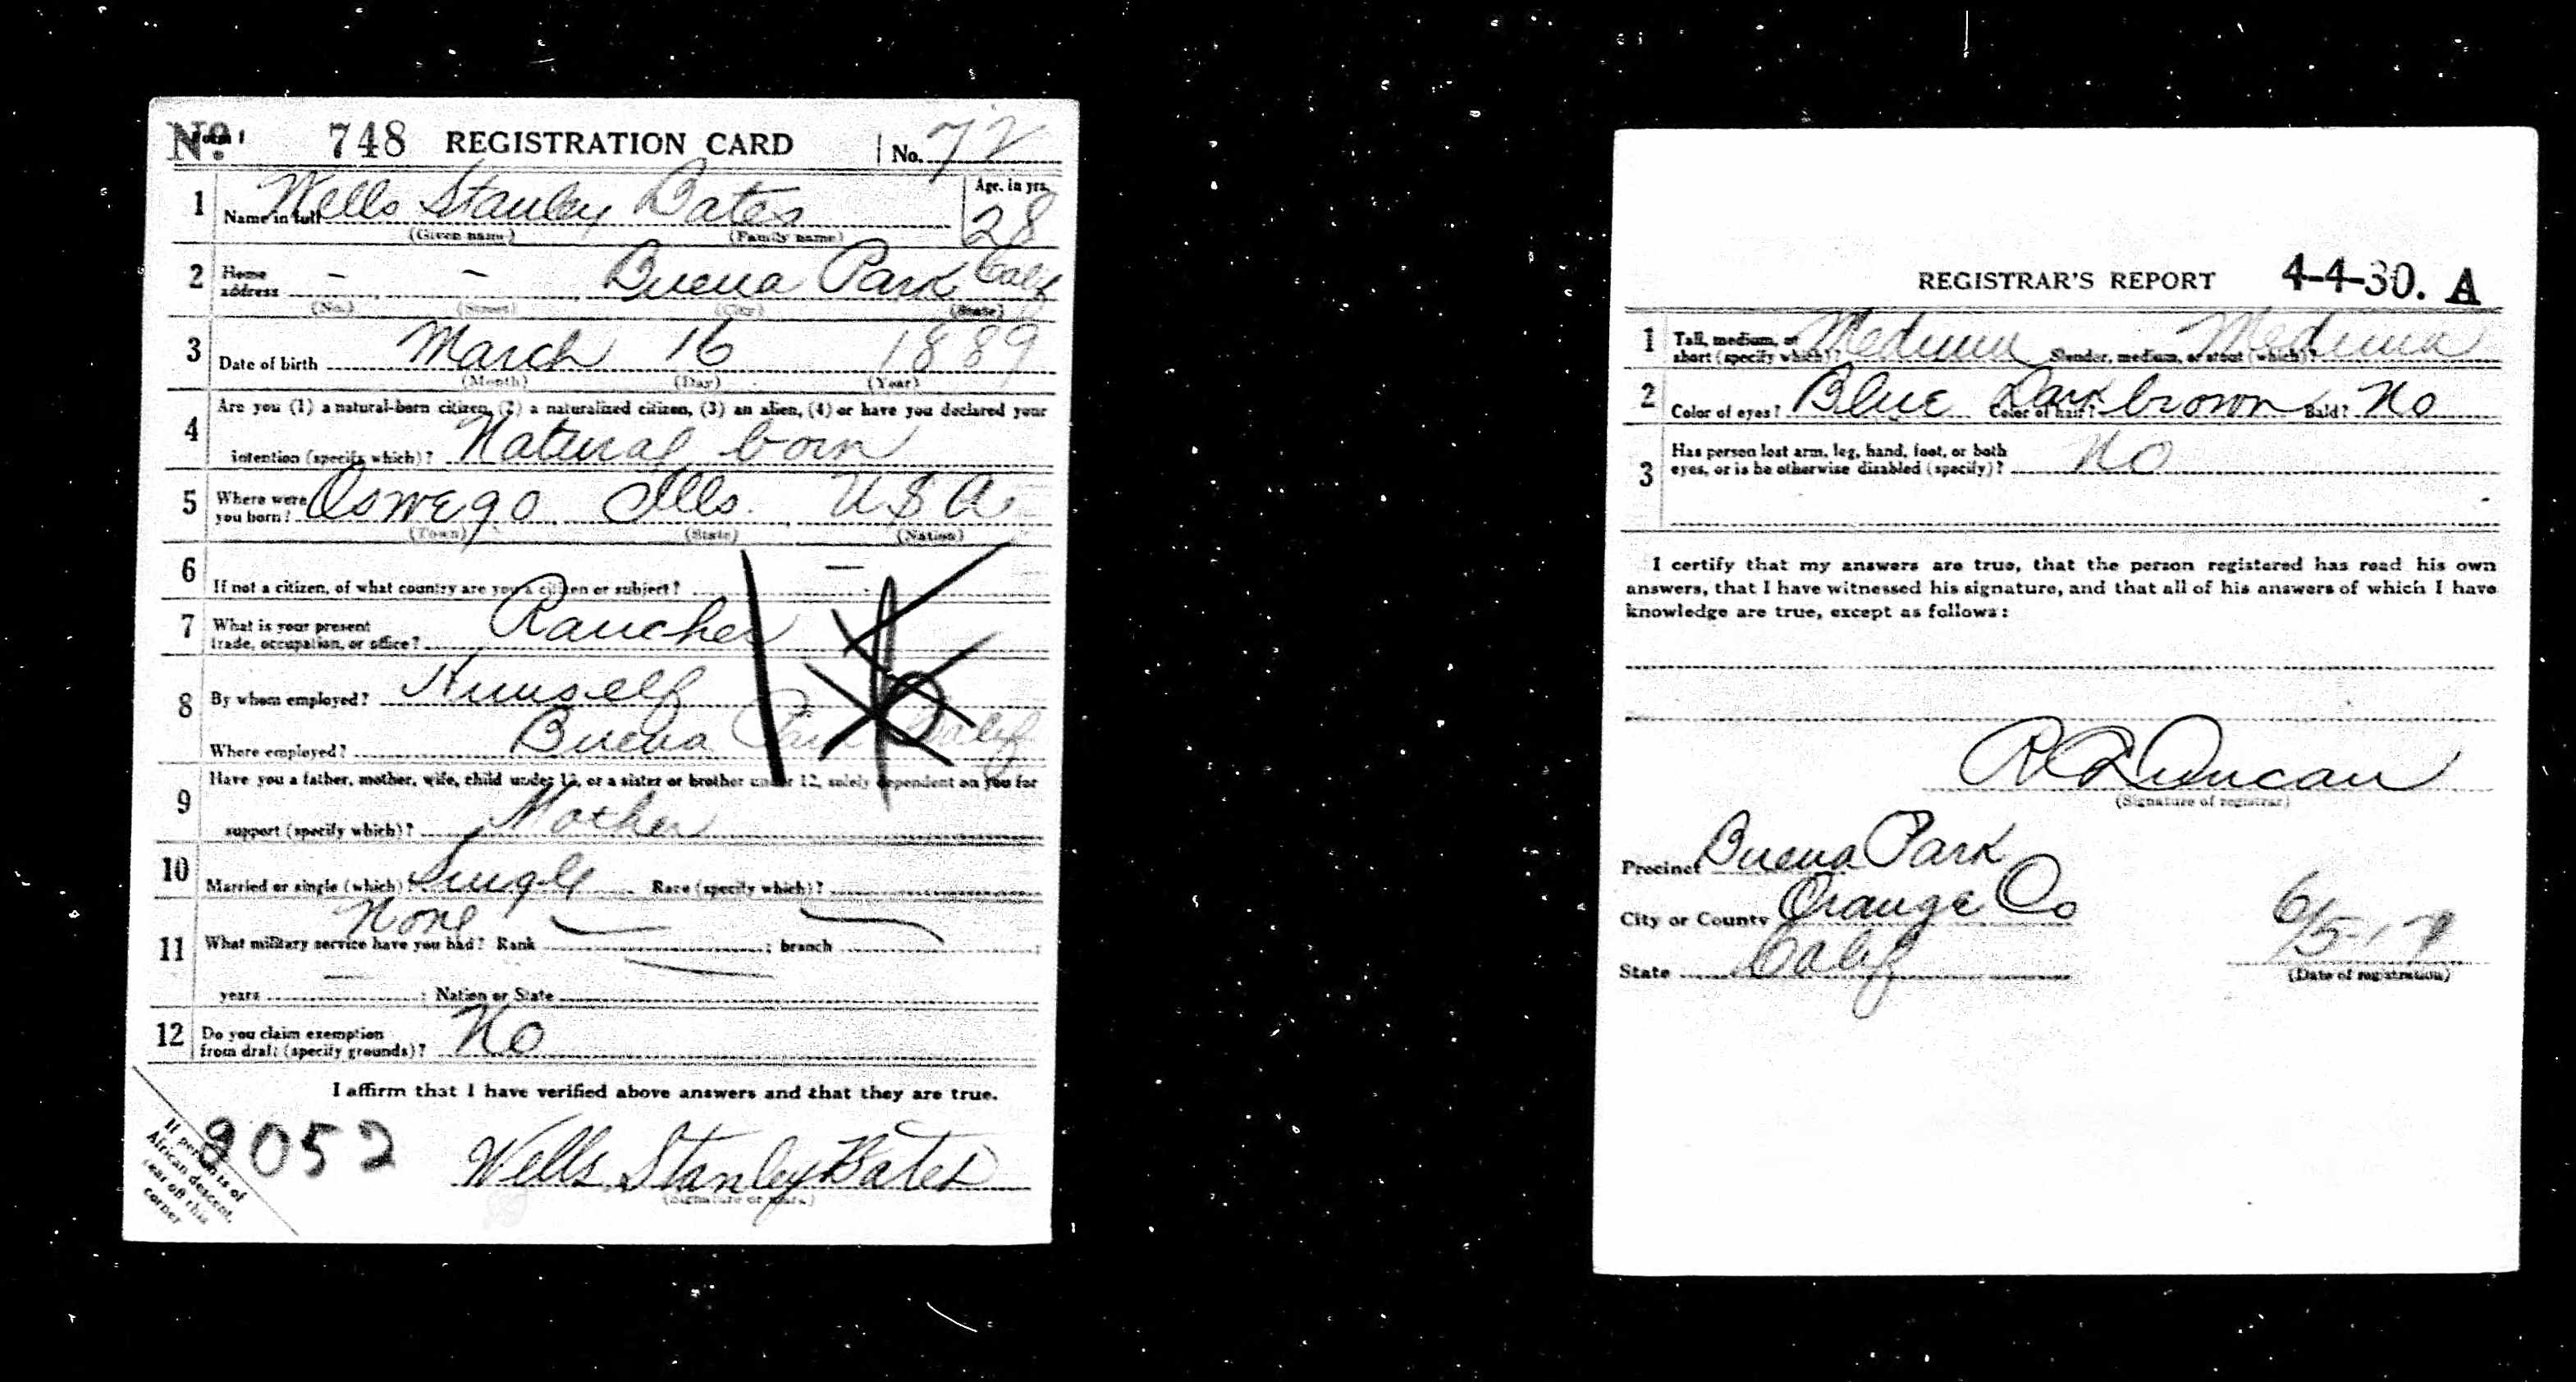 Form 1
No. 748 REGISTRATION CARD No. 72
1 Name in full Wells Stanley Bates Age, in yrs. 28
(Given name) (Family name)
2 Home address - - Buena Park Calif
(No.) (Street) (City) (State)
3 Date of birth March 16 1889
(Month) (Day) (Year)
4 Are you (1) a natural-born citizen, (2) a naturalized citizen, (3) an alien, (4) or have you declared your
intention (specify which)? Natural born
5 Where were you born? Oswego Ills. U S A
(Town) (State) (Nation)
6 If not a citizen, of what country are you a citizen or subject? —
7 What is your present trade, occupation, or office? Rancher
8 By whom employed? Himself
Where employed? Buena Park Calif
9 Have you a father, mother, wife, child under 12, or a sister or brother under 12, solely dependent on you for
support (specify which)? Mother
10 Married or single (which)? Single Race (specify which)?
11 What military service have you had? Rank None — ; branch —
years — ; Nation or State —
12 Do you claim exemption from draft (specify grounds)? No
I affirm that I have verified above answers and that they are true.
2052
Wells Stanley Bates
(Signature or mark)
If person is of
African descent,
tear off this
corner
REGISTRAR'S REPORT 4-4-30. A
1 Tall, medium, or short (specify which)? Medium Slender, medium, or stout (which)? Medium
2 Color of eyes? Blue Color of hair? Dark brown Bald? No
3 Has person lost arm, leg, hand, foot, or both
eyes, or is he otherwise disabled (specify)? No
I certify that my answers are true, that the person registered has read his own
answers, that I have witnessed his signature, and that all of his answers of which I have
knowledge are true, except as follows:
Duncan
(Signature of registrar)
Precinct Buena Park
City or County Orange Co
State Calif
6/5-17
(Date of registration)